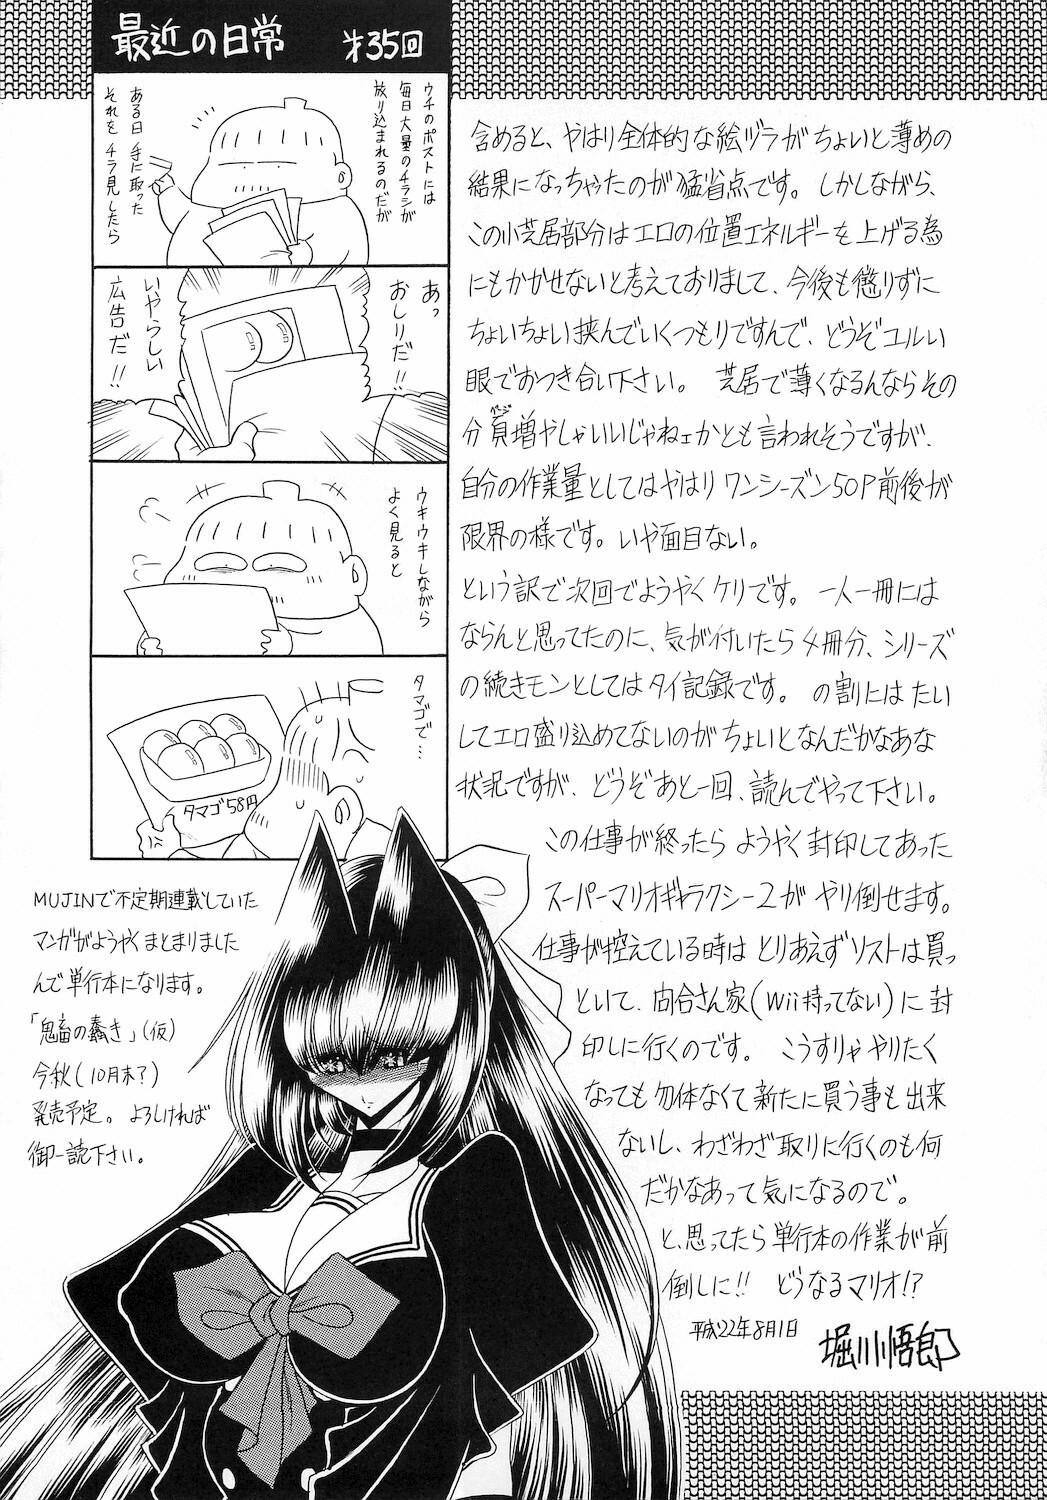 最近の日常 才35回
ウチのポストには
毎日大量のチラシが
放り込まれるのだが
ある日 手に取った
それを チラ見したら
あっ
おしりだ!!
いやらしい
広告だ!!
ウキウキしながら
よく見ると
タマゴで…
タマゴ58円
含めると、やはり全体的な絵ヅラがちょいと薄めの
結果になっちゃったのが猛省点です。しかしながら、
この小芝居部分はエロの位置エネルギーを上げる為
にもかかせないと考えておりまして、今後も懲りずに
ちょいちょい挟んでいくつもりですんで、どうぞユルい
眼でおつき合い下さい。 芝居で薄くなるんならその
分頁増やしゃいいじゃねェかとも言われそうですが、
自分の作業量としてはやはりワンシーズン50P前後が
限界の様です。いや面目ない。
という訳で次回でようやくケリです。一人一冊には
ならんと思ってたのに、気が付いたら4冊分、シリーズ
の続きモンとしてはタイ記録です。の割にはたい
してエロ盛り込めてないのがちょいとなんだかなあな
状況ですが、どうぞあと一回、読んでやって下さい。
この仕事が終ったらようやく封印してあった
スーパーマリオギャラクシー2がヤリ倒せます。
仕事が控えている時はとりあえずソフトは買っ
といて、向合さん家(Wii持ってない)に封
印しに行くのです。 こうすりゃやりたく
なっても勿体なくて新たに買う事も出来
ないし、わざわざ取りに行くのも何
だかなあって気になるので。
と、思ってたら単行本の作業が前
倒しに!! どうなるマリオ!?
平成22年8月1日 堀川悟郎
MUJINで不定期連載していた
マンガがようやくまとまりました
んで単行本になります。
「鬼畜の蠢き」(仮)
今秋(10月末?)
発売予定。よろしければ
御一読下さい。